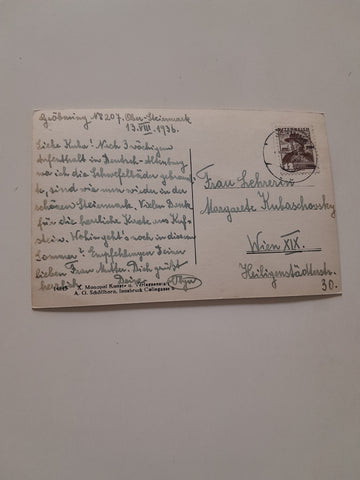 Gröbming № 207, Ober-Steiermark
13.VIII. 1936.
Liebe Huba! Nach 3 wöchigen
Aufenthalt in Deutsch-Altenburg
wo ich die Schwefelbäder gebrauch-
te, sind wir nun wieder in der
schönen Steiermark. Vielen Dank
für die herrliche Karte aus Kuf-
stein. Wohin geht's noch in diesem
Sommer? Empfehlungen Deiner
lieben Frau Mutter. Dich grüßt
herzlich Deine
Frau Lehrerin
Margarete Kubaschovsky
Wien XIX.
Heiligenstädterstr.
30.
ÖSTERREICH
Monopol Kunst- u.
A. G. Schöllhorn, Innsbruck